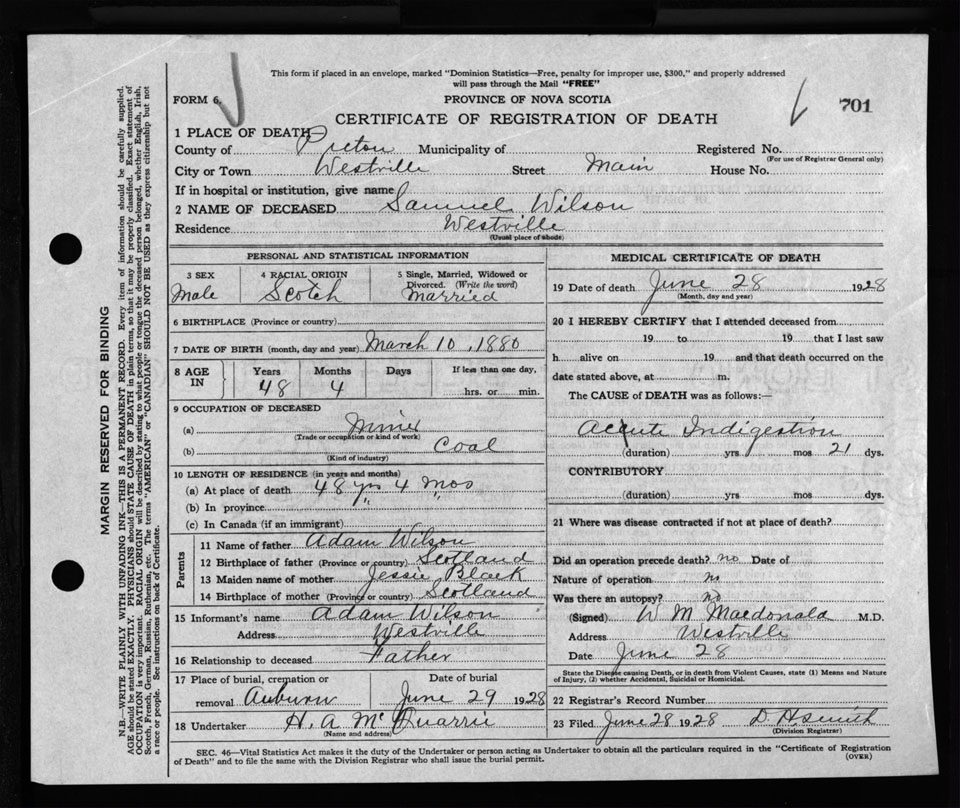 This form if placed in an envelope, marked "Dominion Statistics—Free, penalty for improper use, $300," and properly addressed
will pass through the Mail "FREE"
FORM 6. PROVINCE OF NOVA SCOTIA 701
CERTIFICATE OF REGISTRATION OF DEATH
1 PLACE OF DEATH—
County of Pictou Municipality of Registered No.
(For use of Registrar General only)
City or Town Westville Street Main House No.
If in hospital or institution, give name
2 NAME OF DECEASED Samuel Wilson
Residence Westville
(Usual place of abode)
PERSONAL AND STATISTICAL INFORMATION
3 SEX 4 RACIAL ORIGIN 5 Single, Married, Widowed or
Divorced. (Write the word)
Male Scotch Married
6 BIRTHPLACE (Province or country)
7 DATE OF BIRTH (month, day and year) March 10, 1880
8 AGE IN Years Months Days If less than one day,
48 4 hrs. or min.
9 OCCUPATION OF DECEASED
(a) Miner
(Trade or occupation or kind of work)
(b) Coal
(Kind of industry)
10 LENGTH OF RESIDENCE (in years and months)
(a) At place of death 48 yrs 4 mos
(b) In province " "
(c) In Canada (if an immigrant)
Parents
11 Name of father Adam Wilson
12 Birthplace of father (Province or country) Scotland
13 Maiden name of mother Jessie Black
14 Birthplace of mother (Province or country) Scotland
15 Informant's name Adam Wilson
Address Westville
16 Relationship to deceased Father
17 Place of burial, cremation or Date of burial
removal Auburn June 29 1928
18 Undertaker H. A. McQuarrie
(Name and address)
MEDICAL CERTIFICATE OF DEATH
19 Date of death June 28 1928
(Month, day and year)
20 I HEREBY CERTIFY that I attended deceased from
19 to 19 that I last saw
h alive on 19 and that death occurred on the
date stated above, at m.
The CAUSE of DEATH was as follows:—
Acute Indigestion
(duration) yrs. mos 21 dys.
CONTRIBUTORY
(duration) yrs mos dys.
21 Where was disease contracted if not at place of death?
Did an operation precede death? no Date of
Nature of operation no
Was there an autopsy? no
(Signed) W M Macdonald M.D.
Address Westville
Date June 28
State the Disease causing Death, or in death from Violent Causes, state (1) Means and Nature
of Injury, (2) whether Accidental, Suicidal or Homicidal.
22 Registrar's Record Number
23 Filed June 28 1928 D. H Smith
(Division Registrar)
SEC. 46—Vital Statistics Act makes it the duty of the Undertaker or person acting as Undertaker to obtain all the particulars required in the "Certificate of Registration
of Death" and to file the same with the Division Registrar who shall issue the burial permit. (OVER)
MARGIN RESERVED FOR BINDING
N.B.—WRITE PLAINLY WITH UNFADING INK—THIS IS A PERMANENT RECORD. Every item of information should be carefully supplied.
AGE should be stated EXACTLY. PHYSICIANS should STATE CAUSE OF DEATH in plain terms, so that it may be properly classified. Exact statement of
OCCUPATION is very important. RACIAL ORIGIN will be described by stating to what people or tongue the deceased person belonged, whether English, Irish,
Scotch, French, German, Russian, Ruthenian, etc. The terms "AMERICAN" or "CANADIAN" SHOULD NOT BE USED as they express citizenship but not
a race or people. See instructions on back of Certificate.